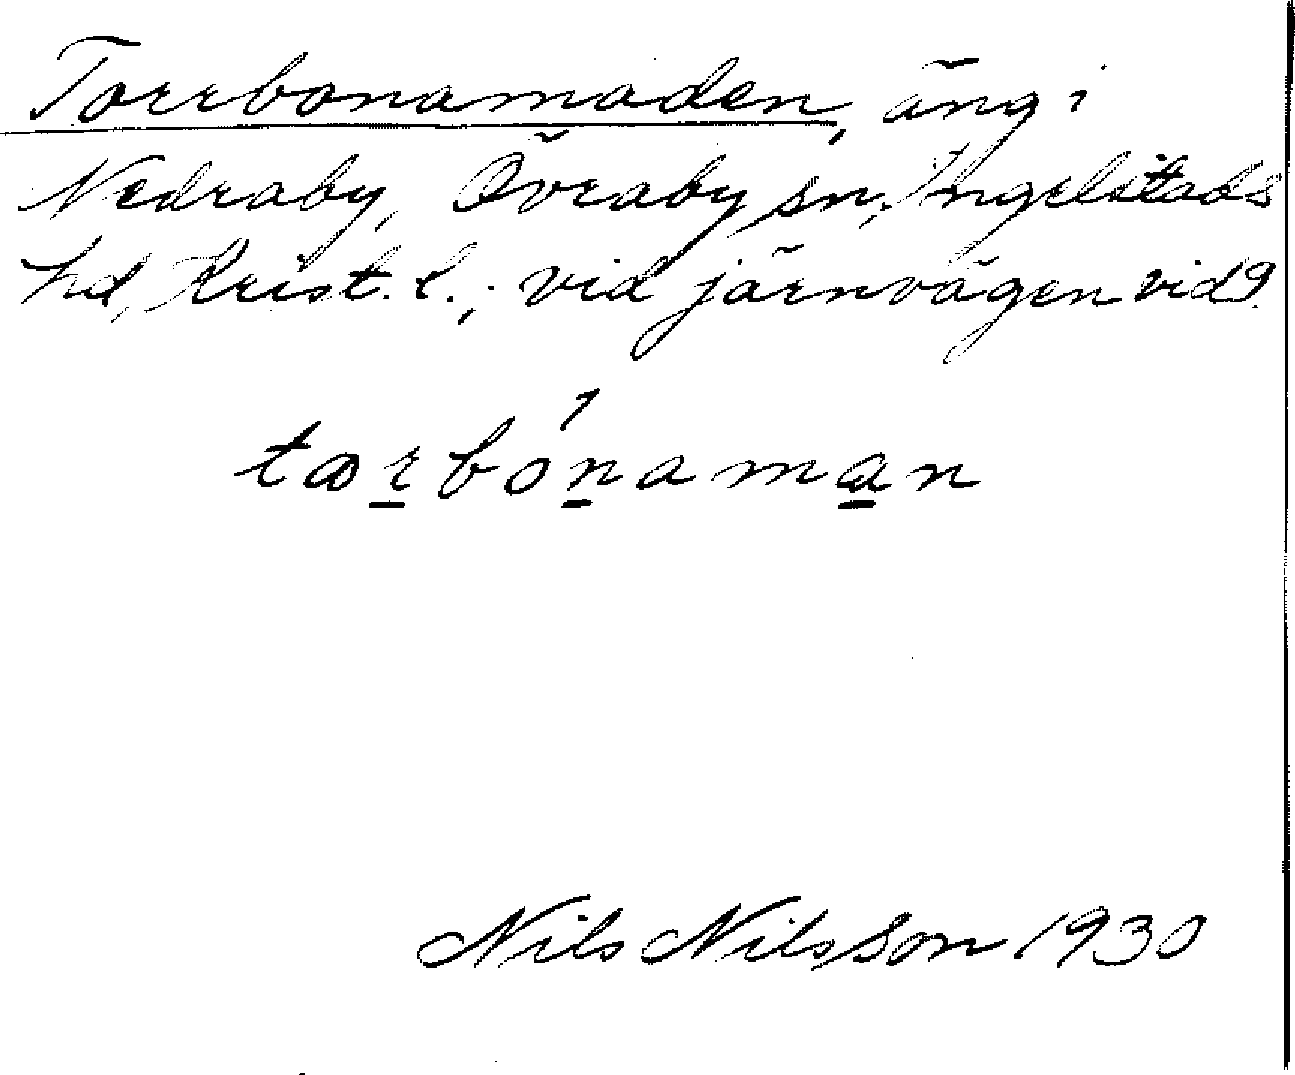 Torrbonamaden, äng i
Nedraby, Övraby sn, Ingelstads
hd, Krist. l.; vid järnvägen vid 9.
tɷrbónaman
Nils Nilsson 1930